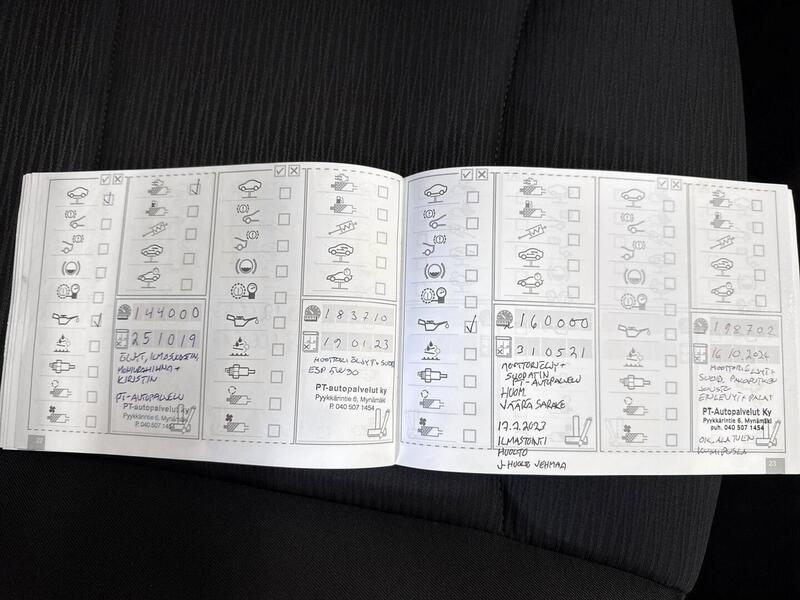 144000
251019
ÖLJYT, ILMASUODATIN,
MONIURAHIHNA +
KIRISTIN
PT-AUTOPALVELU
PT-autopalvelut ky
Pyykkärintie 6, Mynämäki
P. 040 507 1454
22
183710
190123
MOOTTORIÖLJYT + SUOD.
ESP 5W30
PT-autopalvelut ky
Pyykkärintie 6, Mynämäki
P. 040 507 1454
160000
310521
MOOTTORIÖLJY +
SUODATIN
PT-AUTOPALVELU
HUOM
VÄÄRÄ SARAKE
17.7.2023
ILMASTOINTI
HUOLTO
J-HUOLTO VEHMAA
198702
16 10.2024
MOOTTORIÖLJYT +
SUOD. PAKOPUTKEN
JOUSTO
ETULEVYT + PALAT
PT-Autopalvelut Ky
Pyykkärintie 6, Mynämäki
puh. 040 507 1454
OIK. ALATUEN
KUMIPUSLA
23